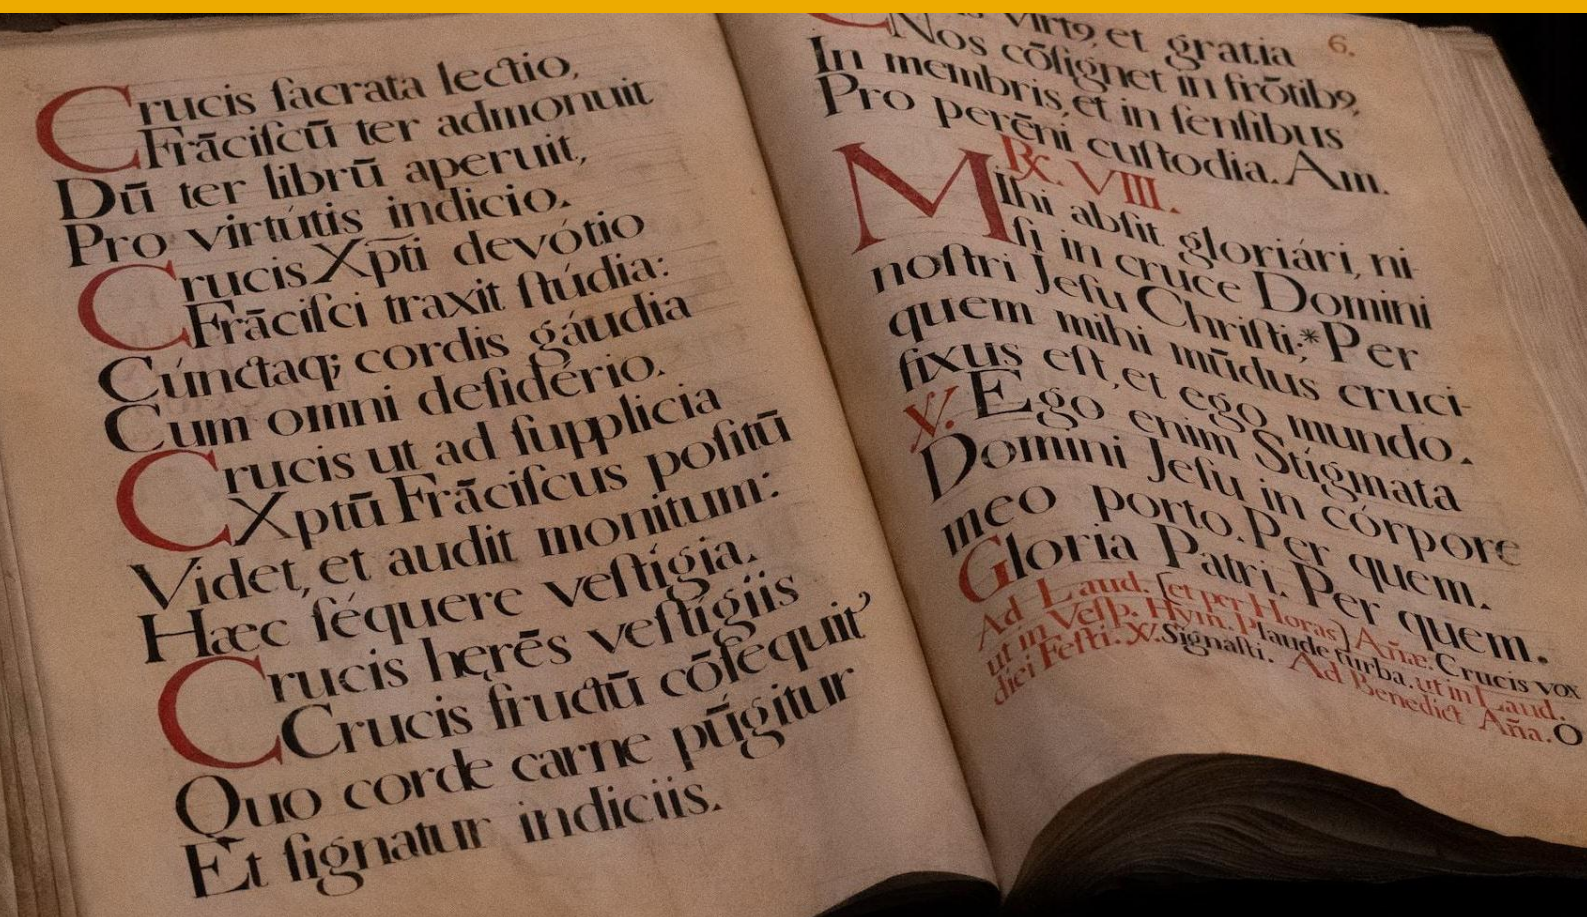 Crucis ſacrata lectio,
Frāciſcū ter admonuit
Dū ter librū aperuit,
Pro virtútis indicio.
Crucis Xp̄ti devótio
Frāciſci traxit ſtúdia:
Cúnctaq; cordis gáudia
Cum omni deſidério.
Crucis ut ad ſupplicia
Xptū Frāciſcus poſitū
Videt, et audit monitum:
Hæc ſéquere veſtígia.
Crucis hęrēs veſtígiis
Crucis fructū cōſequit᾽
Quo corde carne pūgitur
Et ſignatur indiciis.
6.
virtꝯ, et gratia
Nos cōſignet in frōtibꝯ,
In membris, et in ſenſibus
Pro perēni cuſtodia. Am.
℞. VIII.
MIhi abſit gloriári, ni
ſi in cruce Domini
noſtri Jeſu Chriſti; * Per
quem mihi mūdus cruci-
fixus eſt, et ego mundo.
℣. Ego enim Stígmata
Domini Jeſu in córpore
meo porto. Per quem.
Gloria Patri. Per quem.
Ad Laud. (et per Horas) Añæ: Crucis vox
ut in Veſp. Hym. Plaude turba. ut in Laud.
diei Feſti. ℣. Signaſti. Ad Benedict Aña. O